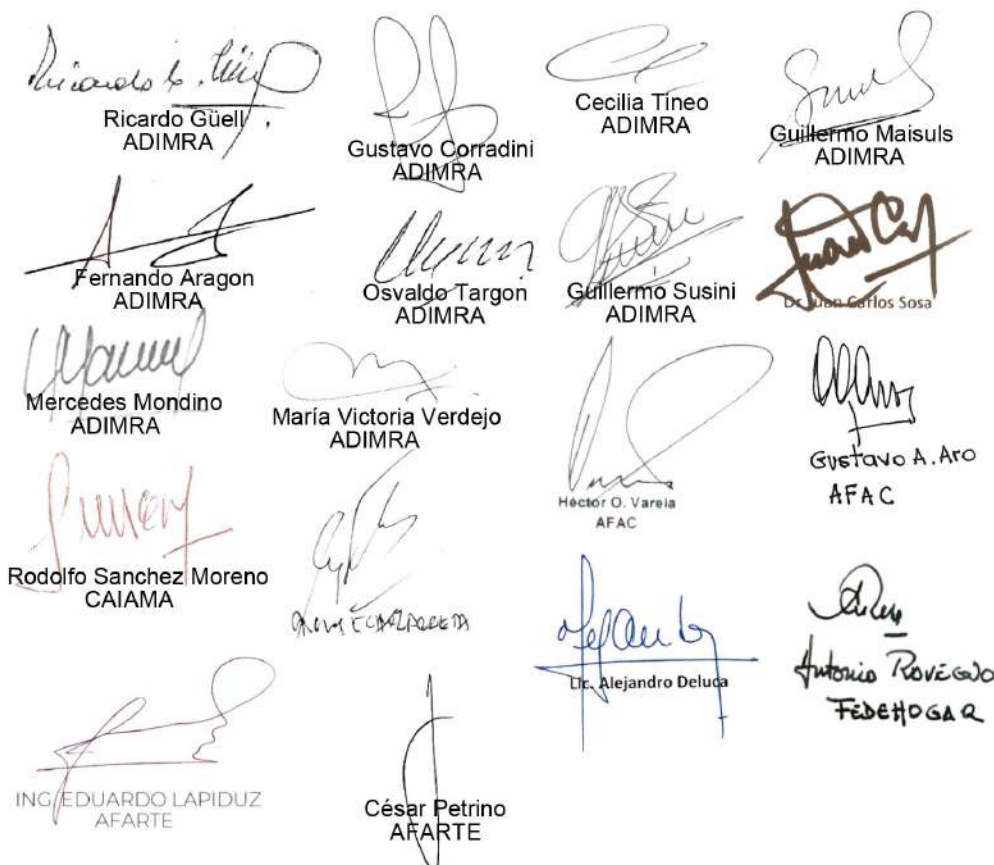 Ricardo Güell
ADIMRA
Gustavo Corradini
ADIMRA
Cecilia Tineo
ADIMRA
Guillermo Maisuls
ADIMRA
Fernando Aragon
ADIMRA
Osvaldo Targon
ADIMRA
Guillermo Susini
ADIMRA
Dr. Juan Carlos Sosa
Mercedes Mondino
ADIMRA
María Victoria Verdejo
ADIMRA
Héctor O. Varela
AFAC
GUSTAVO A. ARO
AFAC
Rodolfo Sanchez Moreno
CAIAMA
Lic. Alejandro Deluca
Antonio ROVEGNO
FEDEHOGAR
ING. EDUARDO LAPIDUZ
AFARTE
César Petrino
AFARTE